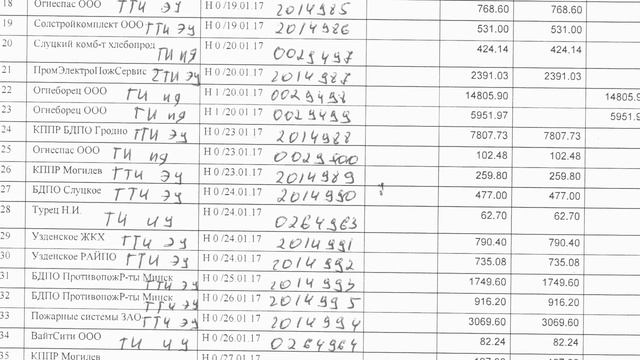 18 Огнеспас ООО ТТИ ЭУ Н 0 /19.01.17 2014985 768.60 768.60
19 Солстройкомплект ООО ТТИ ЭУ Н 0 /19.01.17 2014986 531.00 531.00
20 Слуцкий комб-т хлебопрод ТИ пд Н 0 /20.01.17 0029497 424.14 424.14
21 ПромЭлектроПожСервис ТТИ ЭУ Н 0 /20.01.17 2014987 2391.03 2391.03
22 Огнеборец ООО ТИ пд Н 1 /20.01.17 0029498 14805.90 14805.90
23 Огнеборец ООО ТИ пд Н 1 /20.01.17 0029499 5951.97 5951.97
24 КППР БДПО Гродно ТТИ ЭУ Н 0 /23.01.17 2014988 7807.73 7807.73
25 Огнеспас ООО ТИ пд Н 0 /23.01.17 0029500 102.48 102.48
26 КППР Могилев ТТИ ЭУ Н 0 /23.01.17 2014989 259.80 259.80
27 БДПО Слуцкое ТТИ ЭУ Н 0 /24.01.17 2014990 477.00 477.00
28 Турец Н.И. ТИ чу Н 0 /24.01.17 0264963 62.70 62.70
29 Узденское ЖКХ ТТИ ЭУ Н 0 /24.01.17 2014991 790.40 790.40
30 Узденское РАЙПО ТТИ ЭУ Н 0 /24.01.17 2014992 735.08 735.08
31 БДПО ПротивопожР-ты Минск ТТИ ЭУ Н 0 /25.01.17 2014993 1749.60 1749.60
32 БДПО ПротивопожР-ты Минск ТТИ ЭУ Н 0 /26.01.17 2014995 916.20 916.20
33 Пожарные системы ЗАО ТТИ ЭУ Н 0 /26.01.17 2014994 3069.60 3069.60
34 ВайтСити ООО ТИ чу Н 0 /26.01.17 0264964 82.24 82.24
35 КППР Могилев Н 0 /27.01.17